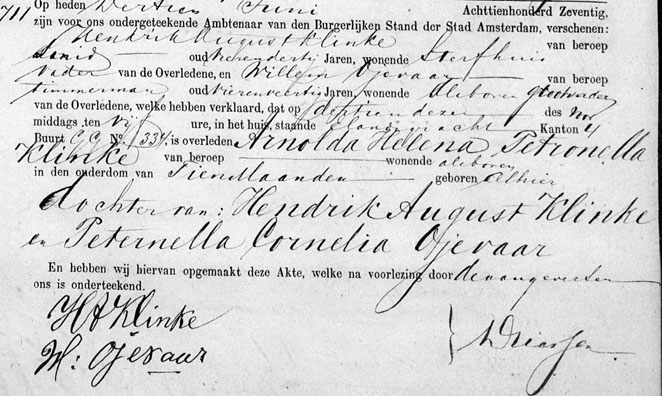 711 Op heden Dertien Juni Achttienhonderd Zeventig,
zijn voor ons ondergeteekende Ambtenaar van den Burgerlijken Stand der Stad Amsterdam, verschenen:
Hendrik August Klinke van beroep
Smid oud Jaren, wonende Sterfhuis
vader van de Overledene, en Willem Ojevaar van beroep
timmerman oud Vierenveertig Jaren, wonende alsboven grootvader
van de Overledene, welke hebben verklaard, dat op des Voor
middags ten Vijf ure, in het huis, staande Elandsgracht Kanton 4
Buurt GG No. 334, is overleden Arnolda Helena Petronella
Klinke van beroep wonende alsboven
in den ouderdom van Tien Maanden geboren Alhier
dochter van: Hendrik August Klinke
en Peternella Cornelia Ojevaar
En hebben wij hiervan opgemaakt deze Akte, welke na voorlezing door de aangevers en
ons is onderteekend.
HA Klinke
W: Ojevaar